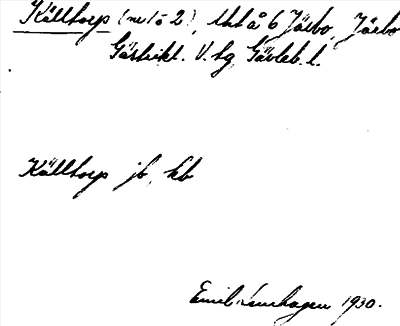 Källtorp (nr 1 o 2), lht å 6 Järbo, Järbo
Gästrikl. V. tg, Gävleb. l.
Källtorp jb, kb
Emil Lenhagen 1930.